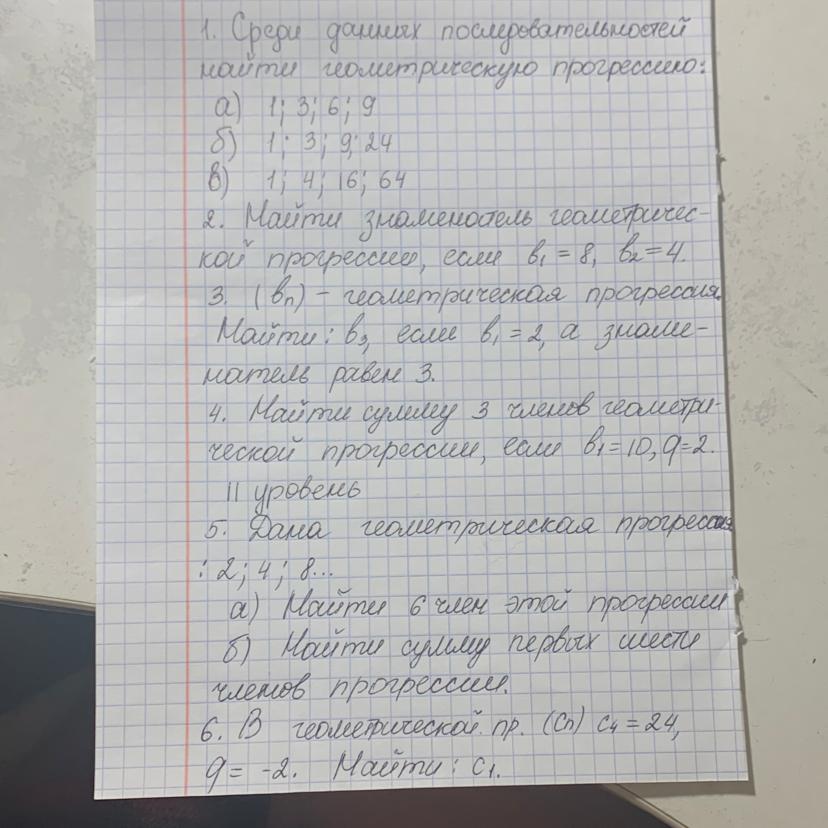 1. Среди данных последовательностей
найти геометрическую прогрессию:
а) 1; 3; 6; 9
б) 1; 3; 9; 24
в) 1; 4; 16; 64
2. Найти знаменатель геометричес-
кой прогрессии, если b₁ = 8, b₂ = 4.
3. (bn) - геометрическая прогрессия.
Найти: b₃, если b₁ = 2, а знаме-
натель равен 3.
4. Найти сумму 3 членов геометри-
ческой прогрессии, если b₁ = 10, q = 2.
II уровень
5. Дана геометрическая прогрессия
: 2; 4; 8...
а) Найти 6 член этой прогрессии
б) Найти сумму первых шести
членов прогрессии.
6. В геометрической пр. (Cn) C₄ = 24,
q = -2. Найти: C₁.